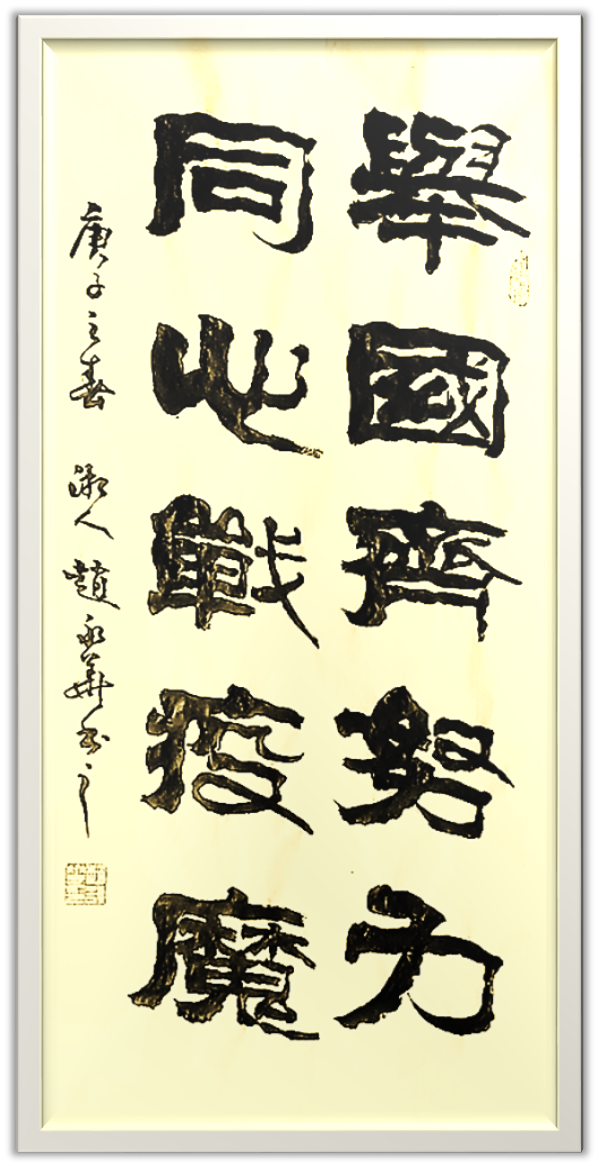 舉國齊努力
同心戰疫魔
庚子之春 湖人趙永華书之